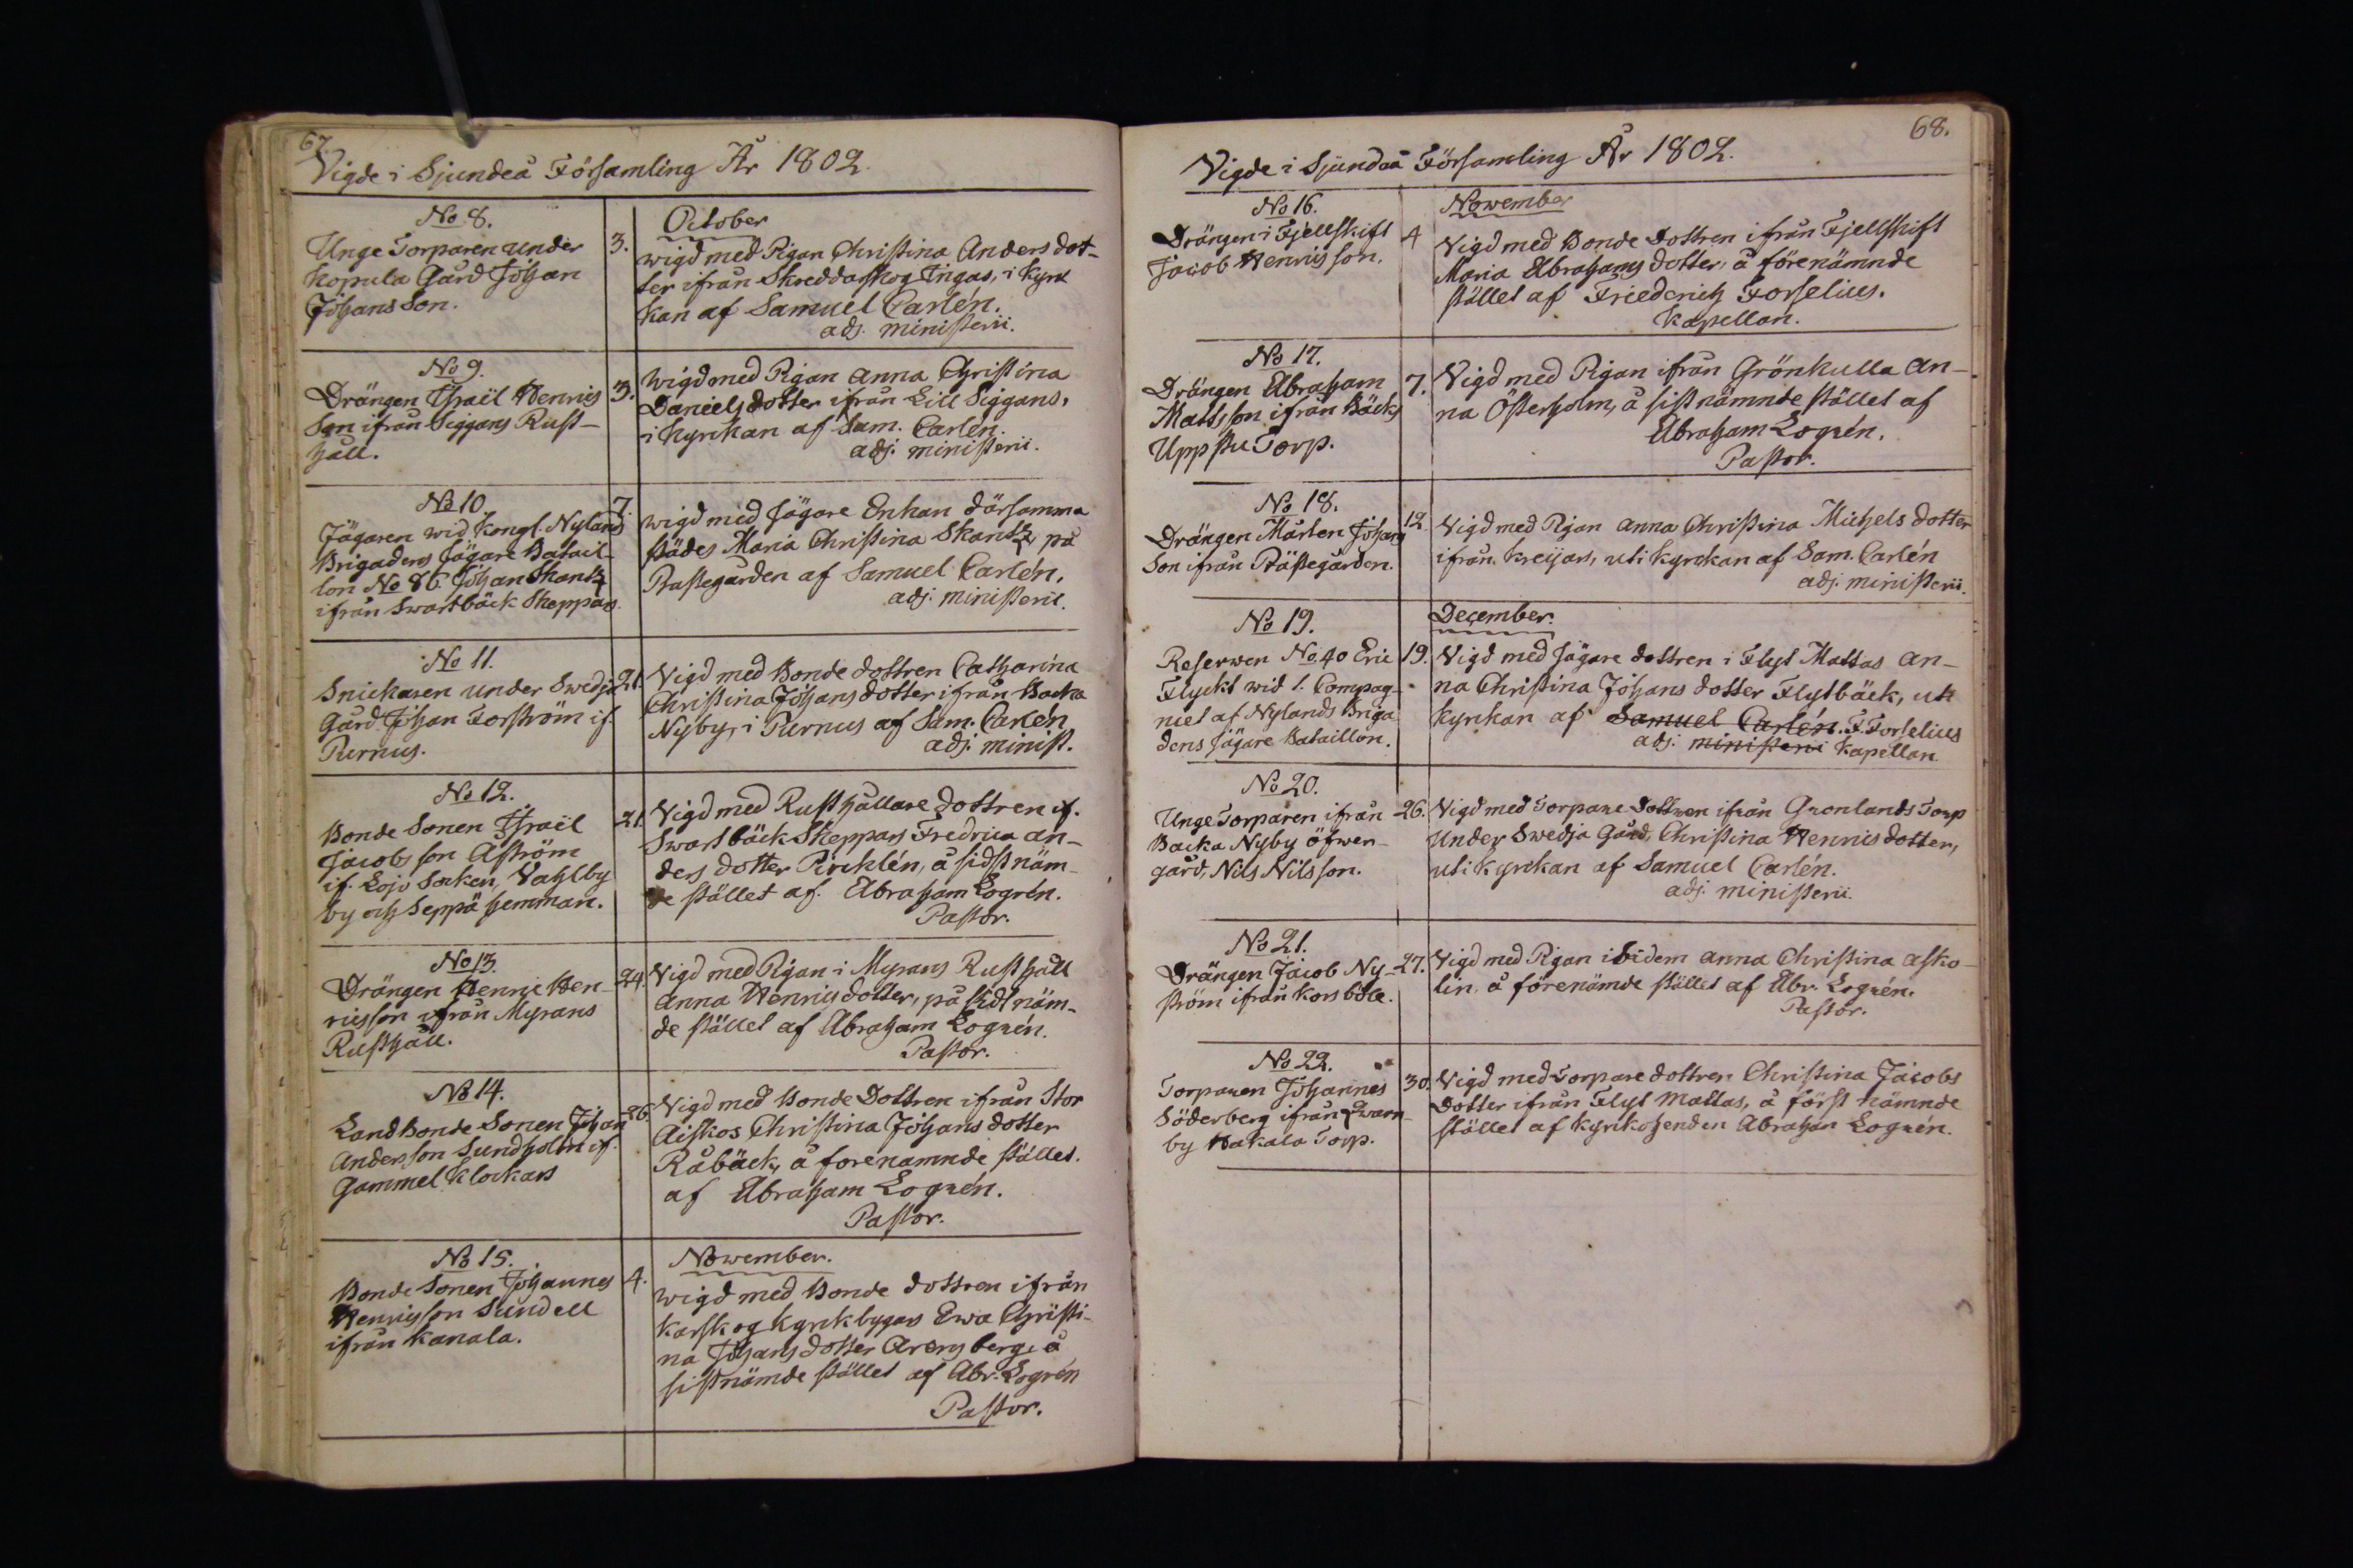 67.
Vigde i Sjundeå Församling År 1802.
No 8.
Unge Torparen under
Kopula Gård Johan
Johans Son.
3.
October
wigd med Pigan Christina Anders dot-
ter ifrån Skreddarskog Ingas, i kyrk
kan af Samuel Carlén.
adj. ministerii.
No 9.
Drängen Israël Henrics
Son ifrån Siggans Rust-
håll.
3.
Wigd med Pigan Anna Christina
Daniels dotter ifrån Lill Siggans,
i kyrkan af Sam. Carlén.
adj. ministerii.
No 10.
Jägaren wid Kongl. Nylands
Brigadens Jägare Batail-
lon No 86. Johan Skantz
ifrån Swartbäck Skeppars.
7.
wigd med Jägare Enkan därsamma
städes Maria Christina Skantz på
Prästegården af Samuel Carlén.
adj. ministerii.
No 11.
Snickaren under Swedja
Gård Johan Forström if.
Purnus.
21.
Vigd med Bonde dottren Catharina
Christina Johans dotter ifrån Backa
Nyby, i Purnus af Sam. Carlén
adj. minist.
No 12.
Bonde Sonen Israël
Jacobs son Åström
if. Lojo Socken, Vahlby
by och Seppä hemman.
21.
Vigd med Rusthållare dottren if.
Swartbäck Skeppars Fredrica An-
ders dotter Pircklén, å sidstnäm-
de stället af Abraham Logrén.
Pastor.
No 13.
Drängen Henric Hen-
ricsson ifrån Myrans
Rusthåll.
24.
Vigd med Pigan i Myrans Rusthåll
Anna Henrics dotter, på sidstnäm-
de stället af Abraham Logrén.
Pastor.
No 14.
Landbonde Sonen Johan
Andersson Sundholm if.
Gammel Klockars
26.
Vigd med Bonde Dottren ifrån Stor
Aiskos Christina Johans dotter
Råbäck, å forenamnde stället.
af Abraham Logrén.
Pastor.
No 15.
Bonde Sonen Johannes
Henricsson Sundell
ifrån Kanala.
4.
Nowember.
wigd med Bonde dottren ifrån
Karskog Kyrkbygars Ewa Christi-
na Johans dotter Arensberg, å
sistnämde stället af Abr. Logrén
Pastor.
68.
Vigde i Sjundeå Församling År 1802.
No 16.
Drängen i Fjellskift
Jacob Henricsson.
4
Nowember
Vigd med Bonde Dottren ifrån Fjellskift
Maria Abrahams dotter, å förenämnde
stället af Friederich Forselius.
Kapellan.
No 17.
Drängen Abraham
Matsson ifrån Bäcks
Uppstu Torp.
7.
Vigd med Pigan ifrån Grönkulla An-
na Österholm, å sistnämnde stället af
Abraham Logrén.
Pastor.
No 18.
Drängen Mårten Johans
Son ifrån Prästegården.
12.
Vigd med Pigan Anna Christina Michels dotter
ifrån Kreijars, uti kyrckan af Sam. Carlén
adj. ministerii.
No 19.
Reserwen No 40 Eric
Flyckt wid 1. Compag-
niet af Nylands Briga
dens Jägare Bataillon.
19.
December.
Vigd med Jägare dottren i Flyt Mattas An-
na Christina Johans dotter Flytbäck, uti
kyrckan af Samuel Carlén. F. Forselius
adj. ministerii Kapellan.
No 20.
Unge Torparen ifrån
Backa Nyby öfwer-
gård, Nils Nilsson.
26.
Vigd med Torpare dottren ifrån Gronlands Torp
Under Swedja Gård, Christina Henrics dotter,
uti kyrckan af Samuel Carlén.
adj. ministerii.
No 21.
Drängen Jacob Ny-
ström ifrån Korsböle.
27.
Vigd med Pigan ibidem Anna Christina Asko-
lin å förenämde stället af Abr. Logrén.
Pastor.
No 22.
Torparen Johannes
Söderberg ifrån Qwarn-
by Hakala Torp.
30.
Vigd med Torpare dottren Christina Jacobs
Dotter ifrån Flyt Mattas, å först nämnde
stället af kyrkoherden Abraham Logrén.